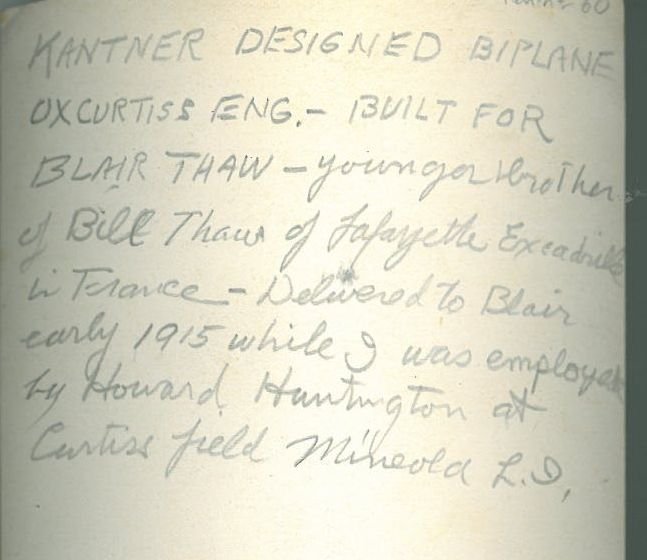 60
KANTNER DESIGNED BIPLANE
OXCURTISS ENG.- BUILT FOR
BLAIR THAW - younger brother
of Bill Thaw of Lafayette Excadrille
in France - Delivered to Blair
early 1915 while I was employed
by Howard Huntington at
Curtiss field Mineola L.I,